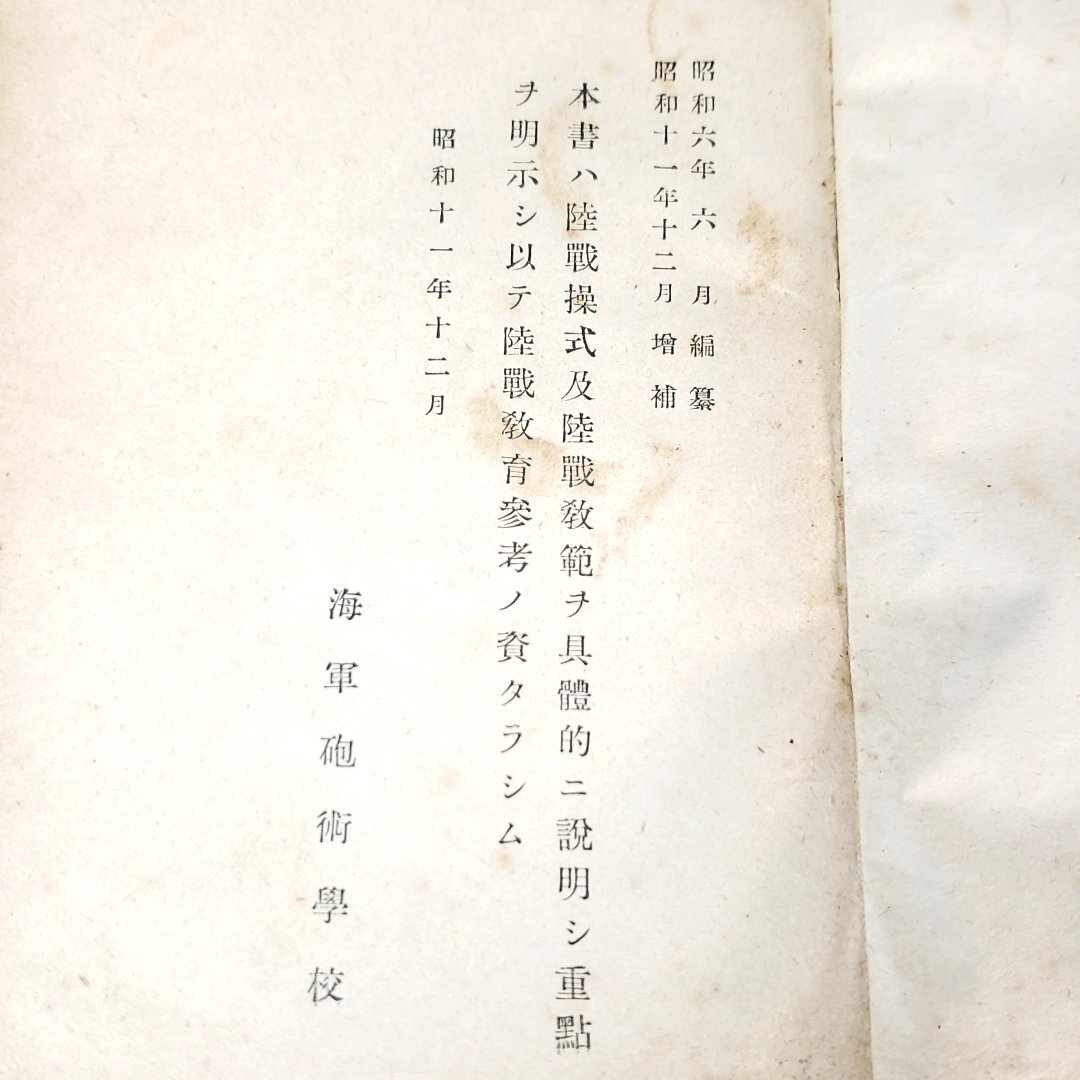 昭和六年六月編纂
昭和十一年十二月增補
本書ハ陸戰操式及陸戰敎範ヲ具體的ニ說明シ重點
ヲ明示シ以テ陸戰敎育參考ノ資タラシム
昭和十一年十二月
海軍砲術學校